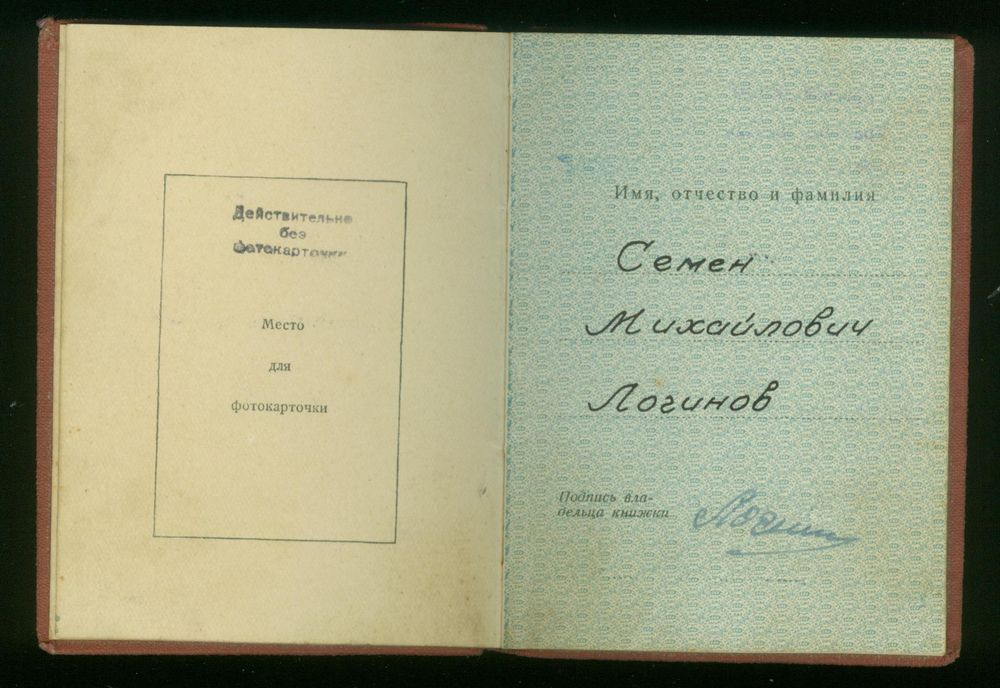 Действительно
без
фотокарточки
Место
для
фотокарточки
Имя, отчество и фамилия
Семен
Михайлович
Логинов
Подпись вла-
дельца книжки